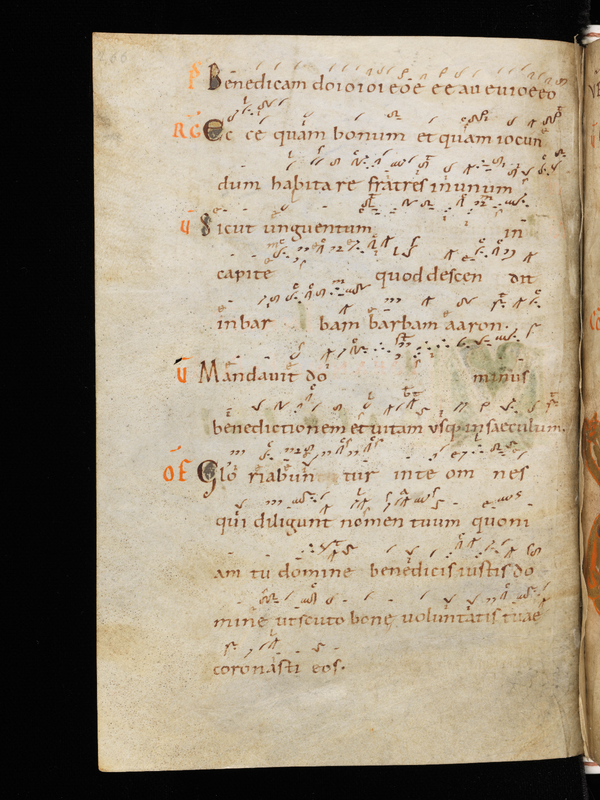 P Benedicam do i o i o i e o e e e a u e u i o e e o
RG Ec ce quam bonum et quam iocun
dum habitare fratres in unum
V Sicut unguentum in
capite quod descen dit
in bar bam barbam aaron.
V Mandavit do minus
benedictionem et vitam vsq; in saeculum.
OF Glo riabun tur inte om nes
qui diligunt nomen tuum quoni
am tu domine benedicis iustis do
mine ut scuto bonę voluntatis tuae
coronasti eos.